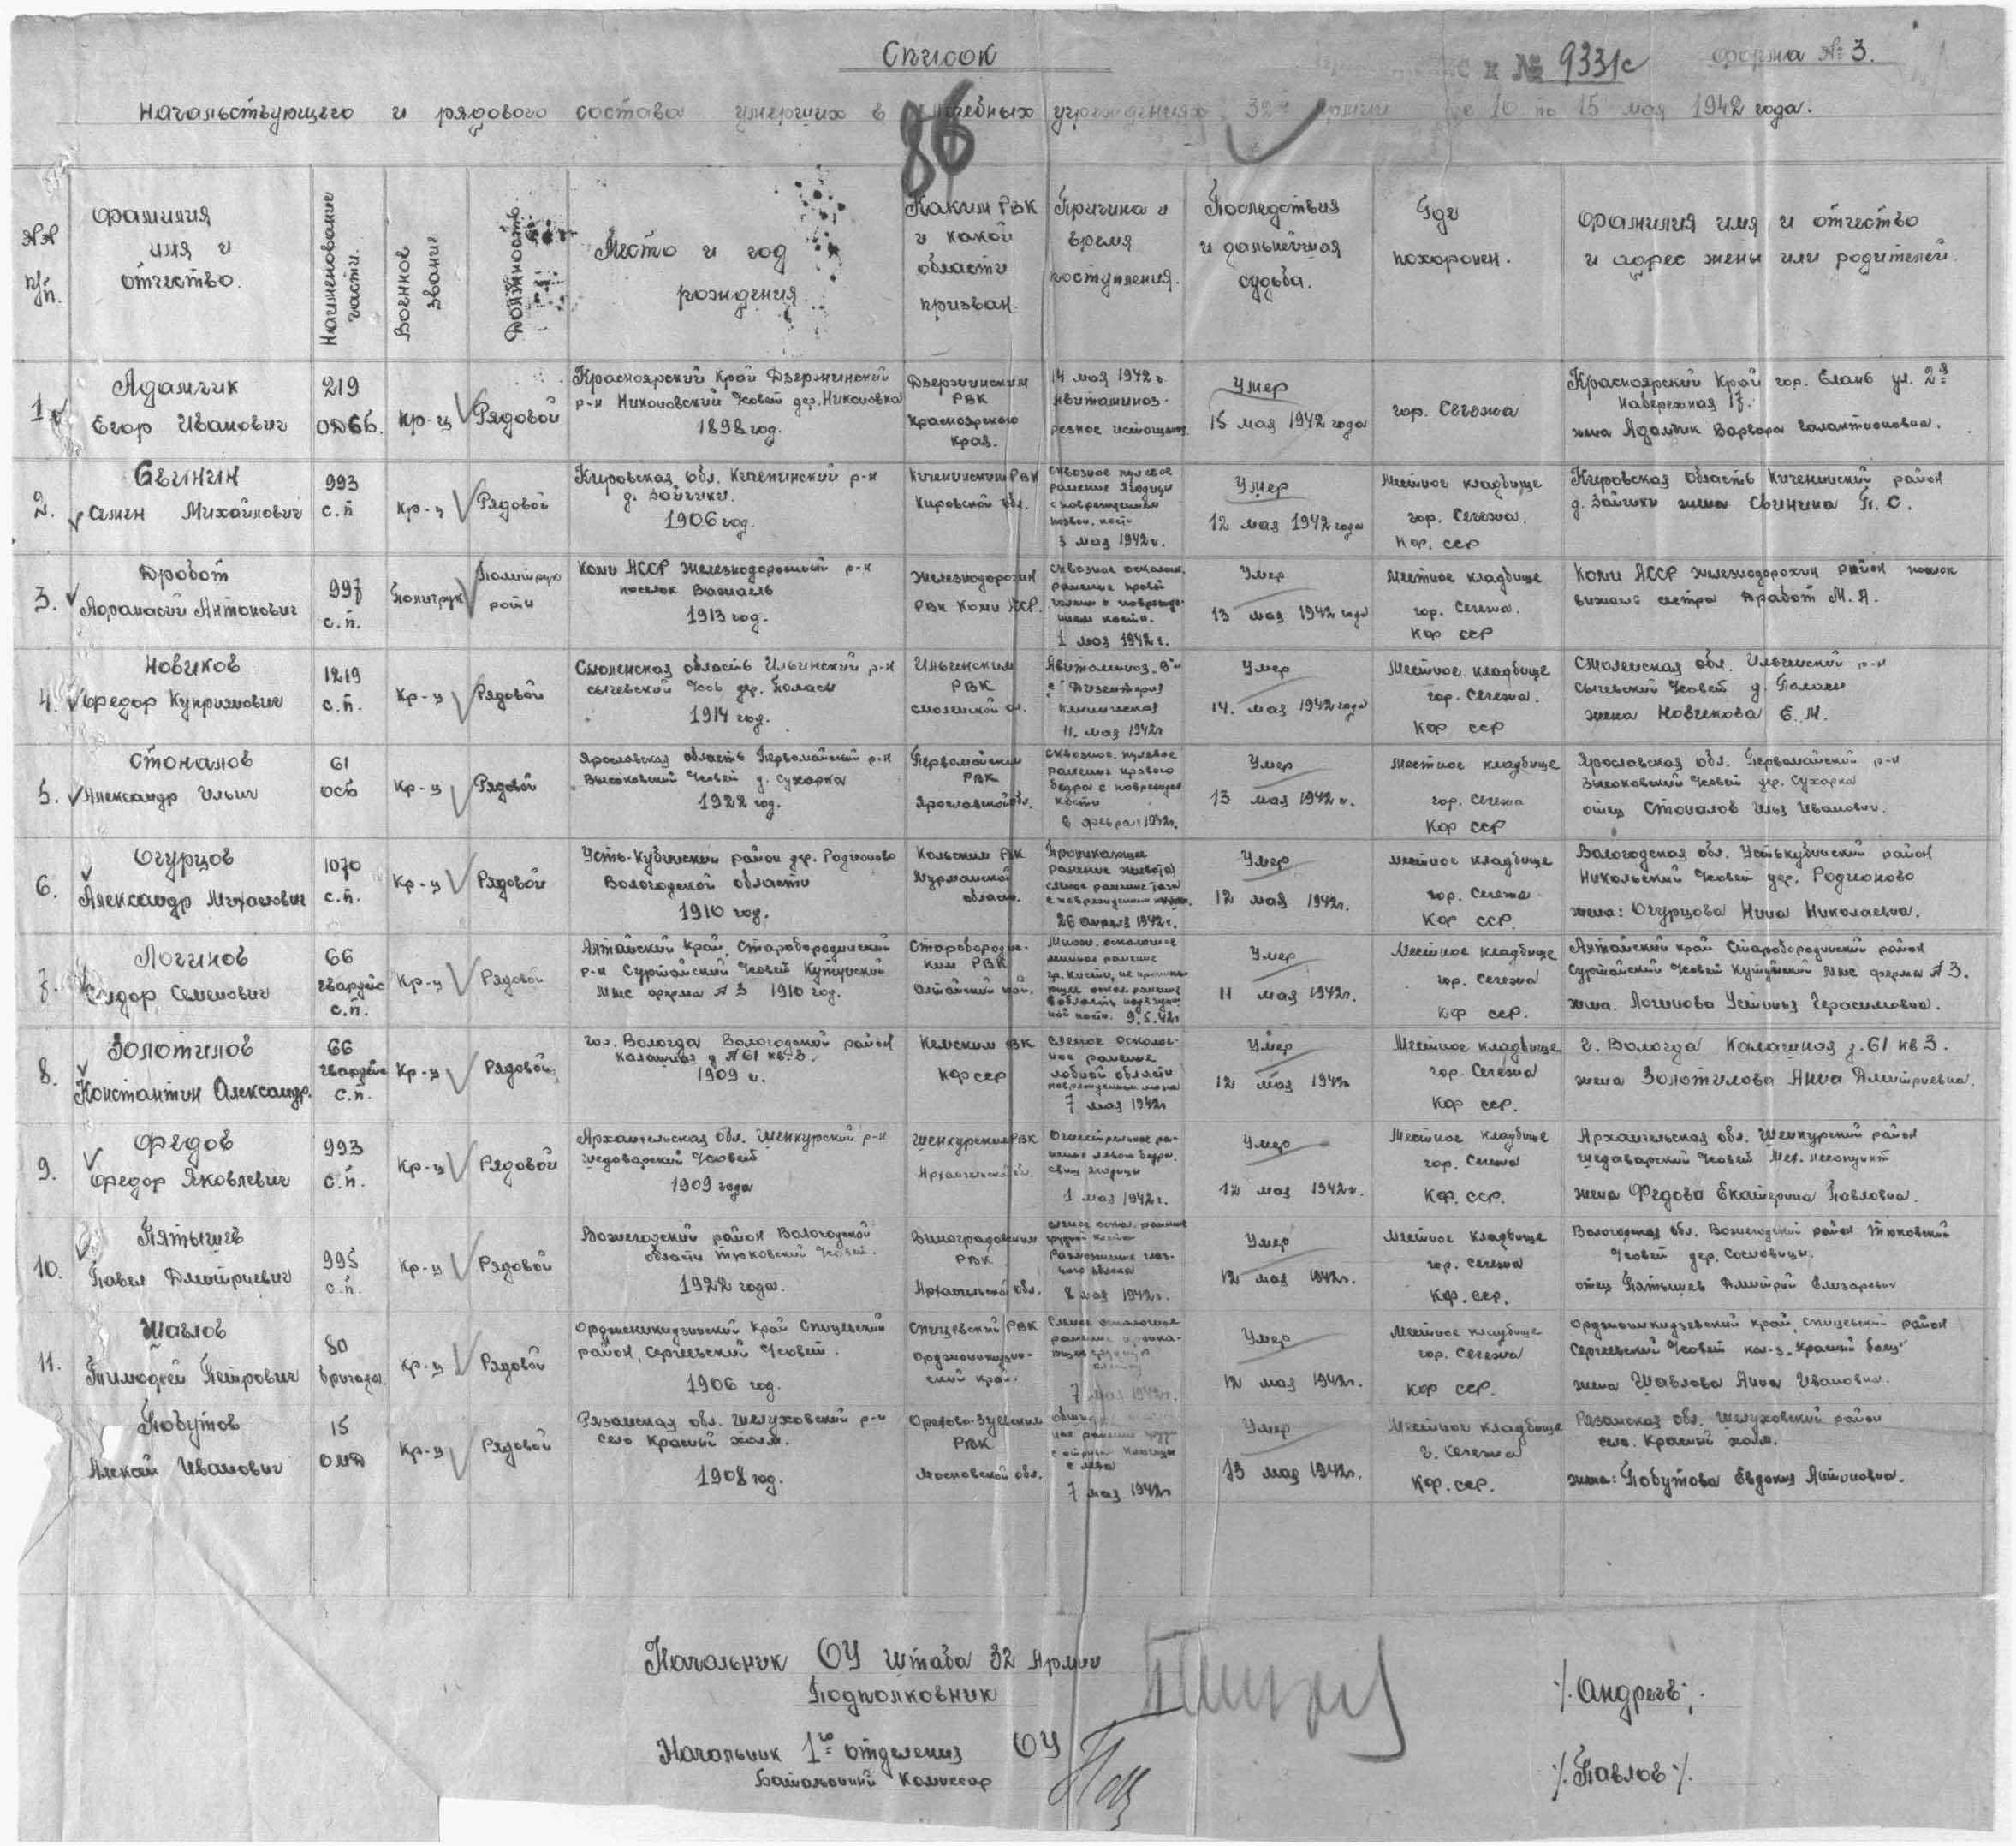 Список
к № 9331с
форма № 3.
Начальствующего и рядового состава умерших в лечебных учреждениях 32й армии с 10 по 15 мая 1942 года.
86
№№ п/п.
Фамилия имя и отчество.
Наименование части.
Военное звание
Должность.
Место и год рождения
Каким РВК и какой области призван.
Причина и время поступления.
Последствия и дальнейшая судьба.
Где похоронен.
Фамилия имя и отчество и адрес жены или родителей.
1.
Адамчик
Егор Иванович
219
Кр-ц
Рядовой
Красноярский Край Дзержинский
р-н Николовский с/совет дер. Николовка
1898 год.
Дзержинским
РВК
Красноярского
Края.
14 мая 1942 г.
Авитаминоз.
резкое истощение
Умер
15 мая 1942 года
гор. Сегежа
Красноярский Край гор. Елань ул. 2я
Набережная 17.
жена Адамчик Варвара Галактионовна.
2.
Свинин
Семен Михайлович
993
с.п
Кр-ц
Рядовой
Кировская обл. Киченинский р-н
д. Зайчики.
1906 год.
Киченинским РВК
Кировской обл.
сквозное пулевое
ранение ягодицы
с повреждением
3 мая 1942 г.
Умер
12 мая 1942 года
Местное кладбище
гор. Сегежа.
Кф. сср
Кировская область Киченинский район
д. Зайчики жена Свинина П. С.
3.
Дробот
Афанасий Антонович
997
с.п.
Политрук
Политрук
роты
Коми АССР Железнодорожный р-н
поселок
1913 год.
Железнодорожн
РВК Коми АССР.
сквозное осколоч.
ранение правой
голени с поврежде-
нием кости.
1 мая 1942 г.
Умер
13 мая 1942 года
Местное кладбище
гор. Сегежа.
Кф сср
Коми АССР Железнодорожн район поселок
сестра Дработ М. А.
4.
Новиков
Федор Куприянович
1219
с.п.
Кр-ц
Рядовой
Смоленская область Ильинский р-н
Сычевский с/сов дер. Поласы
1914 год.
Ильинским
РВК
Смоленской о.
Авитаминоз "В"
Дизентерия
клиническая
11. мая 1942г
Умер
14. мая 1942 года
Местное кладбище
гор. Сегежа.
Кф сср
Смоленская обл. Ильинский р-н
Сычевский с/совет д. Поласы
жена Новикова Е. М.
5.
Стоналов
Александр Ильич
61
осб
Кр-ц
Рядовой
Ярославская область Первомайский р-н
Высоковский с/совет д. Сухарка
1922 год.
Первомайским
РВК
Ярославской обл.
сквозное, пулевое
ранение правого
бедра с поврежден
кости
6 феврал 1942г.
Умер
13 мая 1942 г.
Местное кладбище
гор. Сегежа
Кф сср
Ярославская обл. Первомайский р-н
Высоковский с/совет дер. Сухарка
отец Стоналов Илья Иванович.
6.
Огурцов
Александр Михайлович
1070
с.п.
Кр-ц
Рядовой
Усть-Кубинский район дер. Родионово
Вологодской области
1910 год.
Кольским РВК
Мурманской
област.
Проникающее
ранение живота
слепое ранение таза
с повреждением
26 апреля 1942 г.
Умер
12 мая 1942г.
Местное кладбище
гор. Сегежа
Кф ССР.
Вологодская обл. Устькубинский район
Никольский с/совет дер. Родионово
жена: Огурцова Нина Николаевна.
7.
Логинов
Сидор Семенович
66
гвардейс
с.п.
Кр-ц
Рядовой
Алтайский край, Старобородинский
р-н Суртайский с/совет Кутушский
Ммс ферма № 3 1910 год.
Старобородин-
ким РВК
Алтайский край.
Множ. осколочное
минное ранение
9.5.42г
Умер
11 мая 1942г.
Местное кладбище
гор. Сегежа
Кф сср.
Алтайский край Старобородинский район
Суртайский с/совет Кутушский Ммс ферма № 3.
жена. Логинова Устинья Герасимовна.
8.
Золотилов
Константин Александр.
66
гвардейс
с.п.
Кр-ц
Рядовой
гор. Вологда Вологодский район
Калашная д № 61 кв-3.
1909 г.
Кемским РВК
Кфсср
слепое осколоч-
ное ранение
лобной области
повреждением мозга
7 мая 1942г
Умер
12 мая 1942г
Местное кладбище
гор. Сегежа
Кф сср.
г. Вологда Калашная д. 61 кв 3.
жена Золотилова Анна Дмитриевна.
9.
Федов
Федор Яковлевич
993
с.п.
Кр-ц
Рядовой
Архангельская обл. Шенкурский р-н
Шедоварский с/совет
1909 года
Шенкурским РВК
Архангельской об.
Огнестрельное ра-
нение левого бедра.
1 мая 1942 г.
Умер
12 мая 1942 г.
Местное кладбище
гор. Сегежа
Кф. сср.
Архангельская обл. Шенкурский район
Шедаварский с/совет Мех. лесопункт
жена Федова Екатерина Павловна.
10.
Пятышев
Павел Дмитриевич
995
с.п.
Кр-ц
Рядовой
Вожегодский район Вологодской
области Тюковский с/совет.
1922 года.
Виноградовским
РВК
Архангельской обл.
слепое оскол. ранение
Размозжение глаз-
ного яблока
8 мая 1942 г.
Умер
12 мая 1942г.
Местное кладбище
гор. Сегежа
Кф. сср.
Вологодская обл. Вожегодский район Тюковский
с/совет дер. Сосновица.
отец Пятышев Дмитрий Елизарович
11.
Шавлов
Тимофей Петрович
80
бригада.
Кр-ц
Рядовой
Орджоникидзевский край Спицевский
район, Сергиевский с/совет.
1906 год.
Спицевский РВК
Орджоникидзев-
ский край.
Слепое осколочное
ранение проника-
7 мая 1942г.
Умер
12 мая 1942г.
Местное кладбище
гор. Сегежа
Кф сср.
Орджоникидзевский край, Спицевский район
Сергиевский с/совет кол-з. Красный боец
жена Шавлова Анна Ивановна.
Побутов
Алексей Иванович
15
Кр-ц
Рядовой
Рязанская обл. Шелуховский р-н
село Красный холм.
1908 год.
Орехово-Зуевским
РВК
Московской обл.
7 мая 1942г
Умер
13 мая 1942г.
Местное кладбище
г. Сегежа
Кф. сср.
Рязанская обл. Шелуховский район
село. Красный холм.
жена: Побутова Евдокия Антоновна.
Начальник ОУ Штаба 32 Армии
Подполковник
/. Андреев ./.
Начальник 1го отделения ОУ
Батальонный Комиссар
/. Павлов ./.